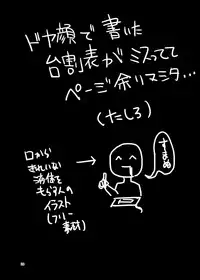 ドヤ顔で書いた
台割表がミスってて
ページ余りマシタ…
(たしろ)
口から
きれいない
液体を
もらす人の
イラスト
(フリー
素材)
すまぬ